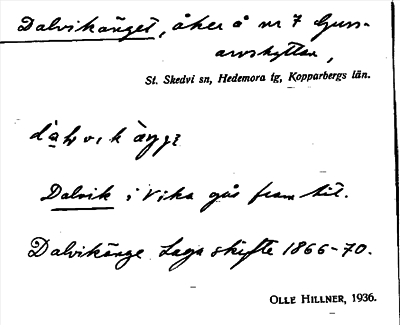 Dalvikänget, åker å nr 7 Guss-
arvshyttan,
St. Skedvi sn, Hedemora tg, Kopparbergs län.
Dalvik i Vika går fram hit.
Dalvikänge Laga skifte 1866-70.
OLLE HILLNER, 1936.